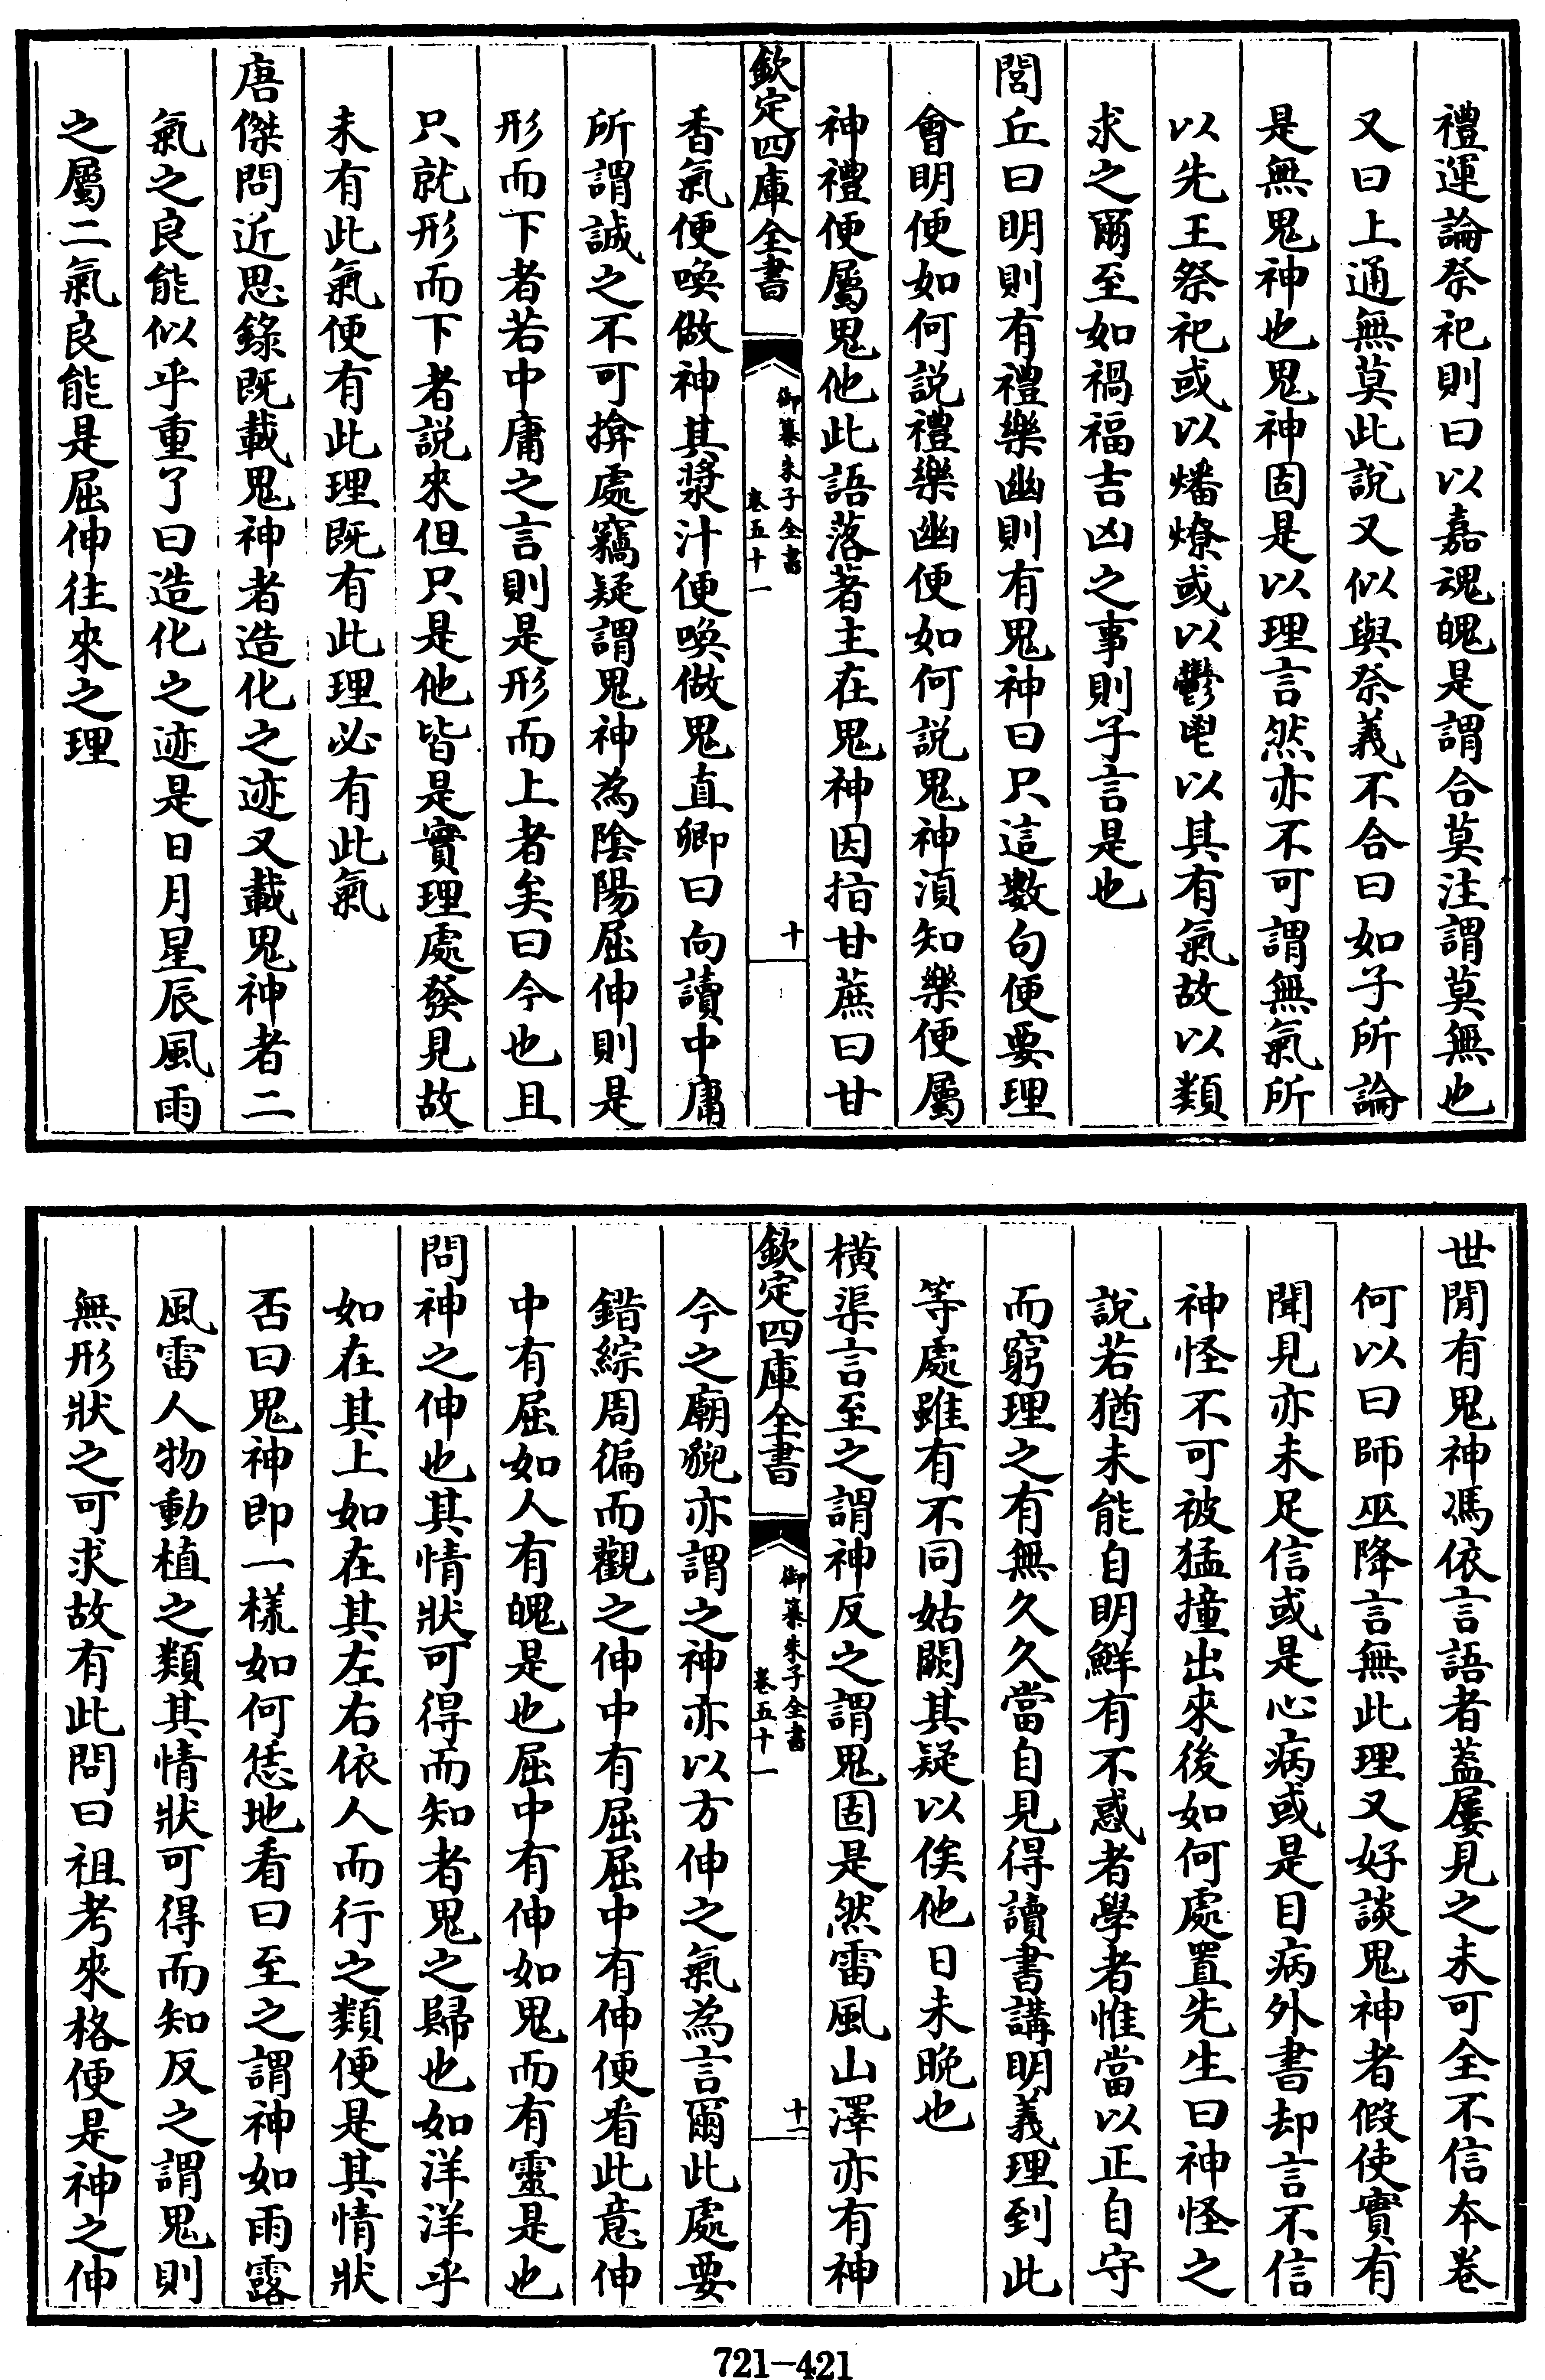 禮運論祭祀則曰以嘉魂魄是謂合莫注謂莫無也
又曰上通無莫此說又似與祭義不合曰如子所論
是無鬼神也鬼神固是以理言然亦不可謂無氣所
以先王祭祀或以燔燎或以鬱鬯以其有氣故以類
求之爾至如禍福吉凶之事則子言是也
閭丘曰明則有禮樂幽則有鬼神曰只這數句便要理
會明便如何說禮樂幽便如何說鬼神須知樂便屬
神禮便屬鬼他此語落著主在鬼神因指甘蔗曰甘
欽定四庫全書
御纂朱子全書
卷五十一
十
香氣便喚做神其漿汁便喚做鬼直卿曰向讀中庸
所謂誠之不可揜處竊疑謂鬼神為陰陽屈伸則是
形而下者若中庸之言則是形而上者矣曰今也且
只就形而下者說來但只是他皆是實理處發見故
未有此氣便有此理既有此理必有此氣
唐傑問近思錄既載鬼神者造化之迹又載鬼神者二
氣之良能似乎重了曰造化之迹是日月星辰風雨
之屬二氣良能是屈伸往來之理
世間有鬼神馮依言語者蓋屢見之未可全不信本卷
何以曰師巫降言無此理又好談鬼神者假使實有
聞見亦未足信或是心病或是目病外書却言不信
神怪不可被猛撞出來後如何處置先生曰神怪之
說若猶未能自明鮮有不惑者學者惟當以正自守
而窮理之有無久久當自見得讀書講明義理到此
等處雖有不同姑闕其疑以俟他日未晚也
橫渠言至之謂神反之謂鬼固是然雷風山澤亦有神
欽定四庫全書
御纂朱子全書
卷五十一
十一
今之廟貌亦謂之神亦以方伸之氣為言爾此處要
錯綜周徧而觀之伸中有屈屈中有伸便看此意伸
中有屈如人有魄是也屈中有伸如鬼而有靈是也
問神之伸也其情狀可得而知者鬼之歸也如洋洋乎
如在其上如在其左右依人而行之類便是其情狀
否曰鬼神即一樣如何恁地看曰至之謂神如雨露
風雷人物動植之類其情狀可得而知反之謂鬼則
無形狀之可求故有此問曰祖考來格便是神之伸
721-421